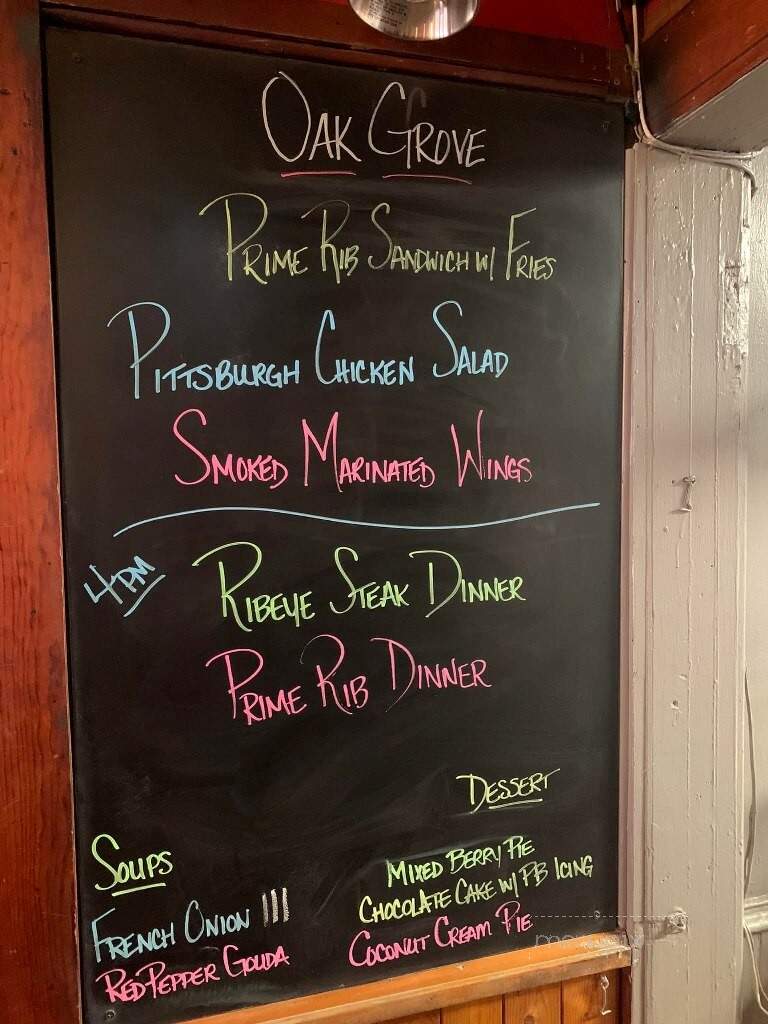 OAK GROVE
PRIME RIB SANDWICH W/ FRIES
PITTSBURGH CHICKEN SALAD
SMOKED MARINATED WINGS
4PM
RIBEYE STEAK DINNER
PRIME RIB DINNER
DESSERT
MIXED BERRY PIE
CHOCOLATE CAKE W/ PB ICING
COCONUT CREAM PIE
SOUPS
FRENCH ONION III
RED PEPPER GOUDA